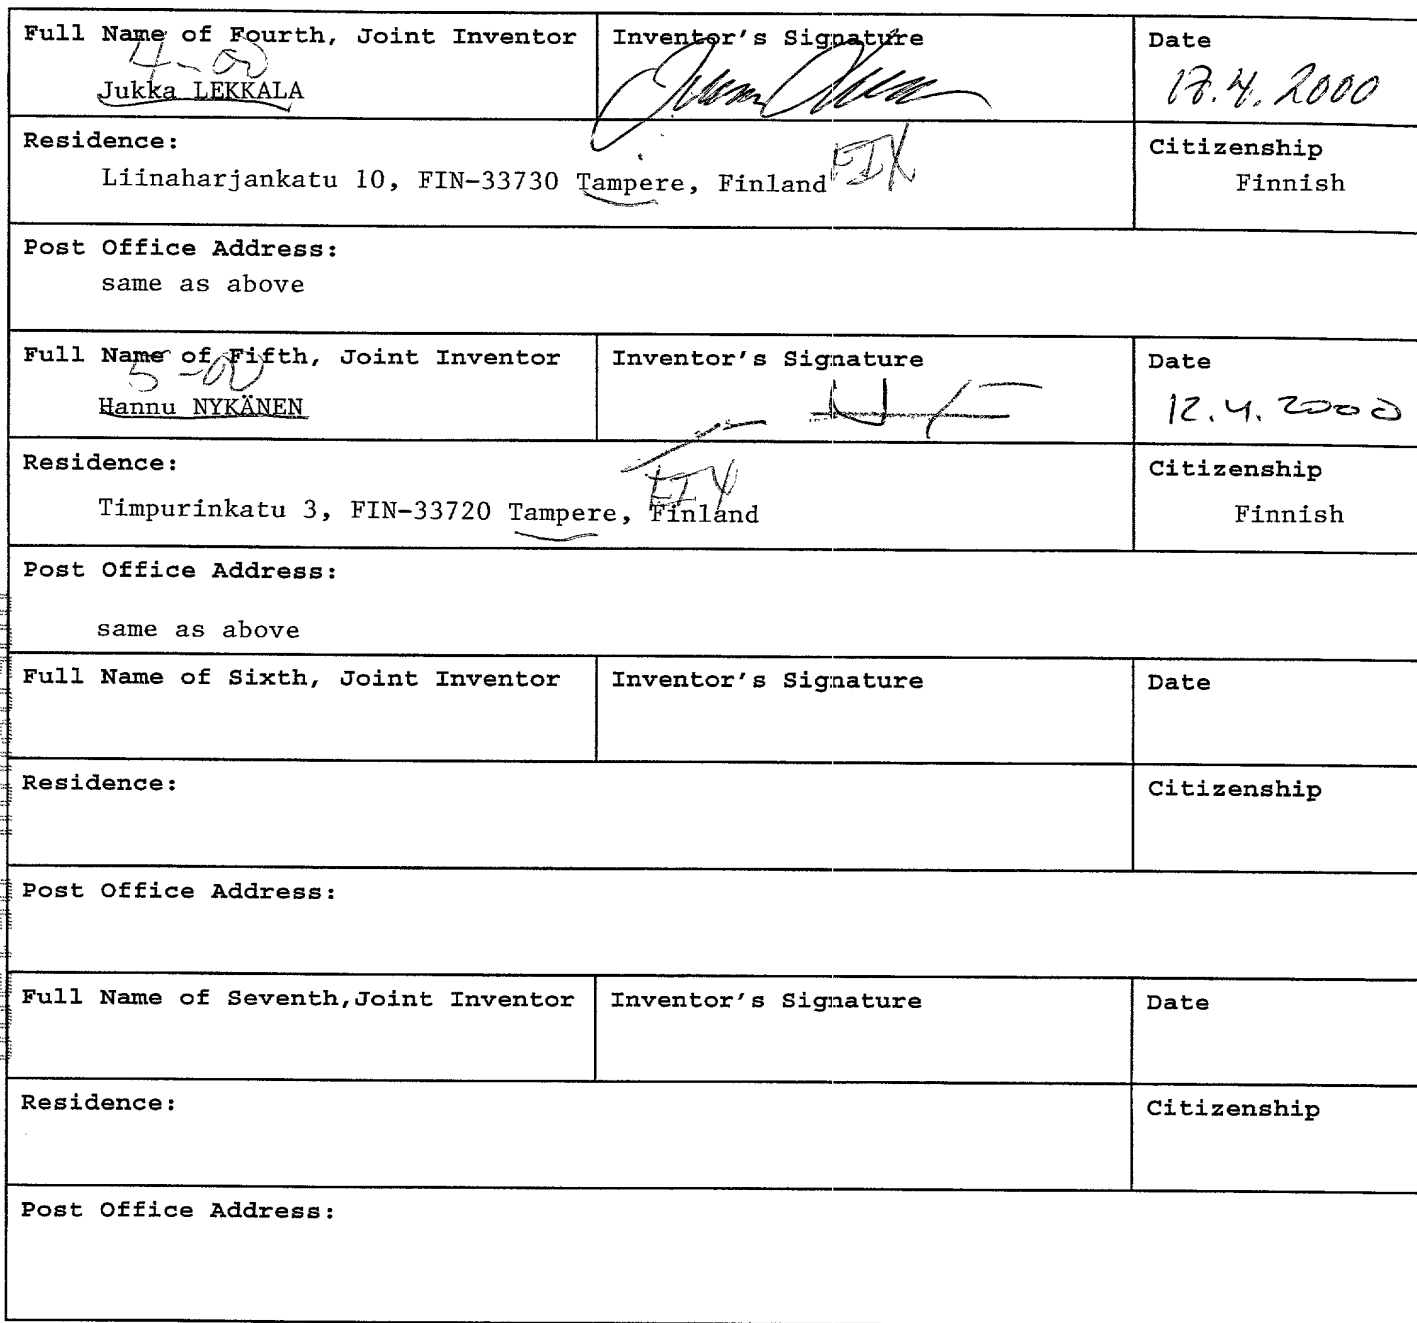 Full Name of Fourth, Joint Inventor
4-00
Jukka LEKKALA
Inventor's Signature
Date
Residence:
Liinaharjankatu 10, FIN-33730 Tampere, Finland FIX
Citizenship
Finnish
Post Office Address:
same as above
Full Name of Fifth, Joint Inventor
5-00
Hannu NYKÄNEN
Inventor's Signature
Date
12.4.2000
Residence:
Timpurinkatu 3, FIN-33720 Tampere, Finland FIX
Citizenship
Finnish
Post Office Address:
same as above
Full Name of Sixth, Joint Inventor
Inventor's Signature
Date
Residence:
Citizenship
Post Office Address:
Full Name of Seventh,Joint Inventor
Inventor's Signature
Date
Residence:
Citizenship
Post Office Address: